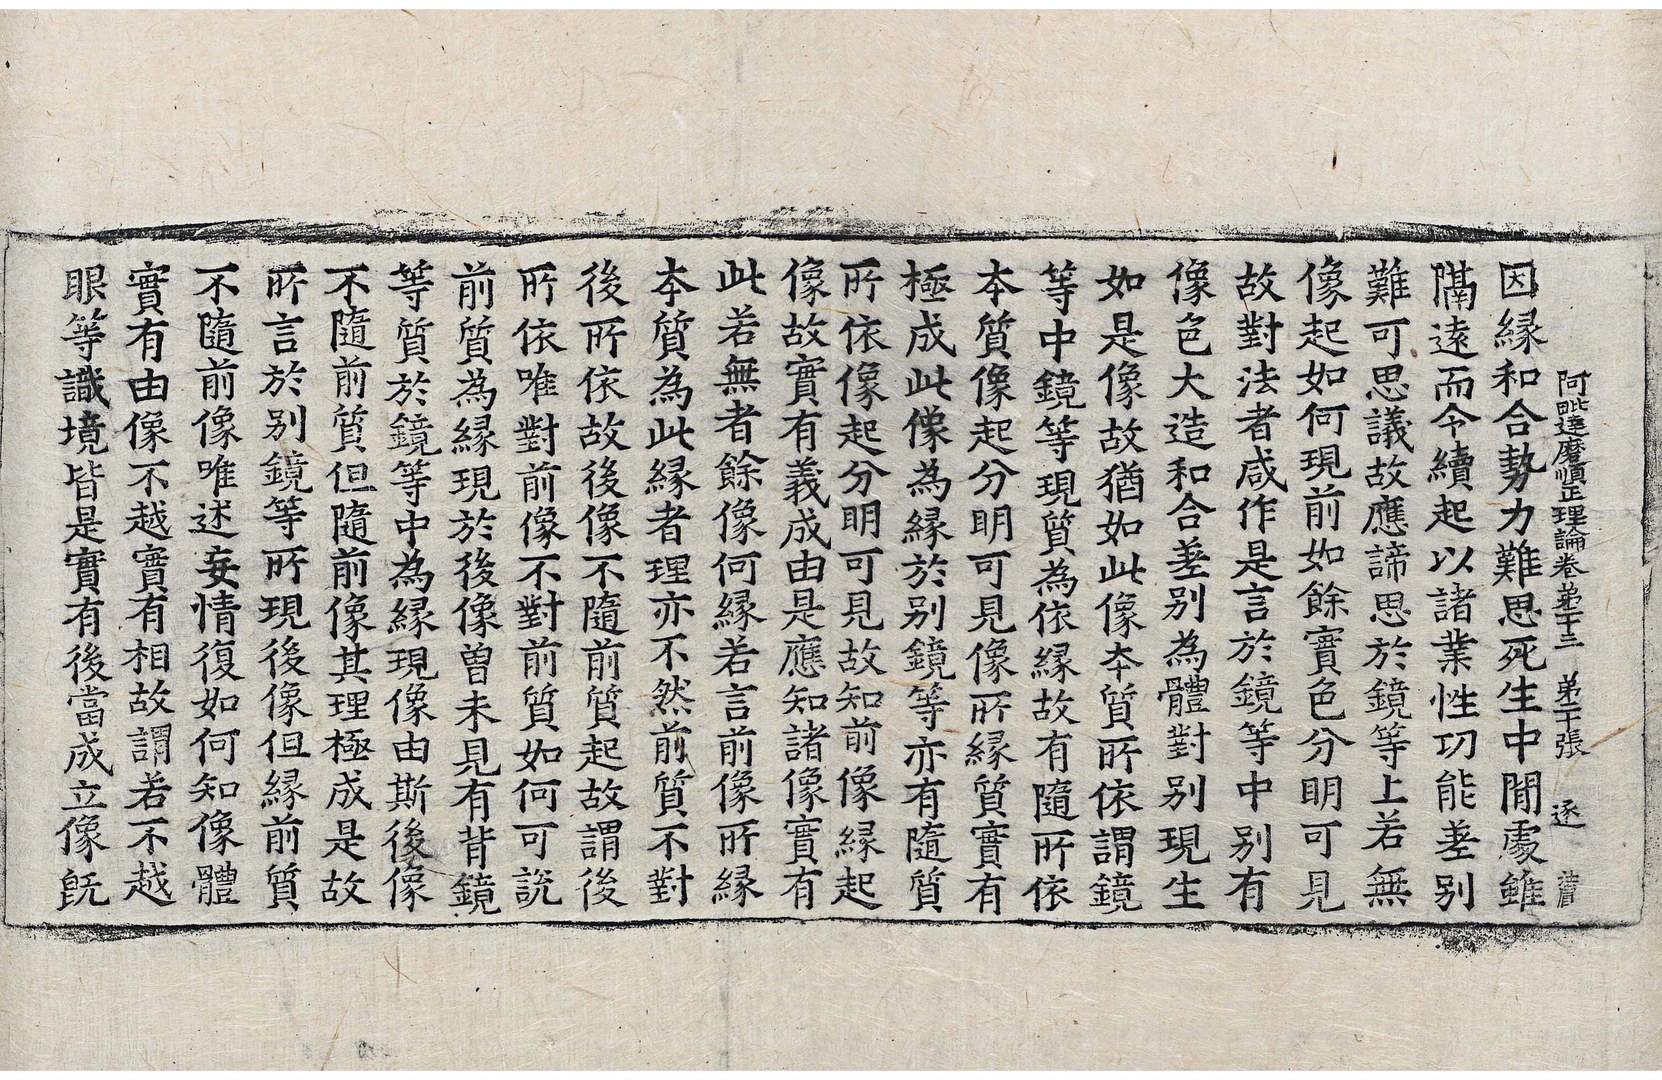 阿毗達磨順正理論卷第二十三 第二十張 逐
因緣和合勢力難思死生中閒處雖
隔遠而令續起以諸業性功能差別
難可思議故應諦思於鏡等上若無
像起如何現前如餘實色分明可見
故對法者咸作是言於鏡等中別有
像色大造和合差別為體對別現生
如是像故猶如此像本質所依謂鏡
等中鏡等現質為依緣故有隨所依
本質像起分明可見像所緣質實有
極成此像為緣於別鏡等亦有隨質
所依像起分明可見故知前像緣起
像故實有義成由是應知諸像實有
此若無者餘像何緣若言前像所緣
本質為此緣者理亦不然前質不對
後所依故後像不隨前質起故謂後
所依唯對前像不對前質如何可說
前質為緣現於後像曾未見有背鏡
等質於鏡等中為緣現像由斯後像
不隨前質但隨前像其理極成是故
所言於別鏡等所現後像但緣前質
不隨前像唯述妄情復如何知像體
實有由像不越實有相故謂若不越
眼等識境皆是實有後當成立像旣